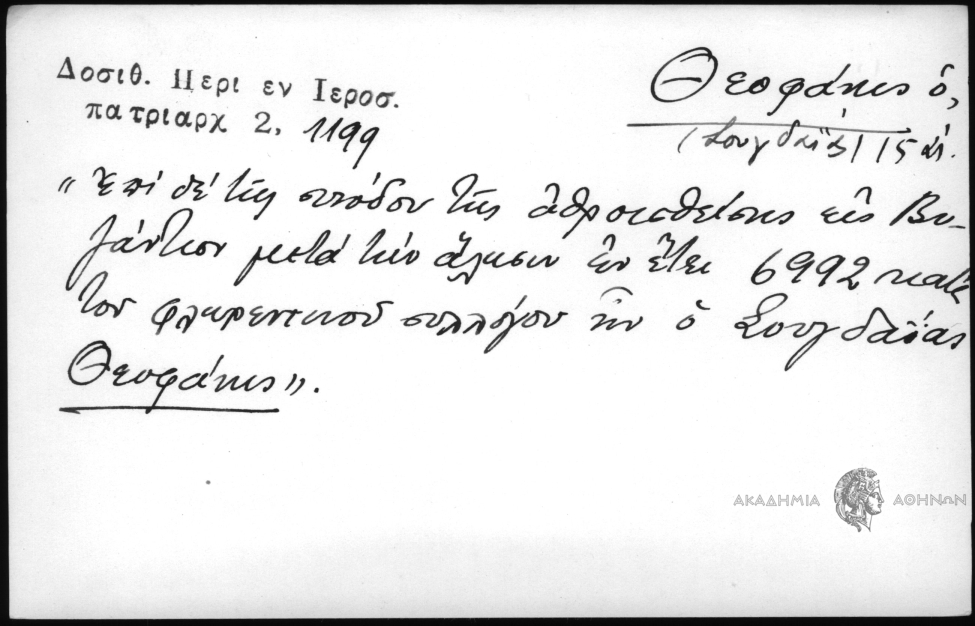 Δοσιθ. Περι εν Ιεροσ.
πατριαρχ 2, 1199
Θεοφάνης ὁ,
(Σουγδαΐας) 15 αἰ.
"Ἐπί δέ τῆς συνόδου τῆς ἀθροισθείσης εἰς Βυ-
ζάντιον μετά τήν ἅλωσιν ἐν ἔτει 6992 κατά
τοῦ φλωρεντινοῦ συλλόγου ἦν ὁ Σουγδαΐας
Θεοφάνης".
ΑΚΑΔΗΜΙΑ ΑΘΗΝΩΝ